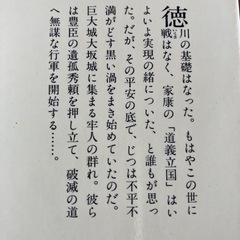 徳川の基礎はなった。もはやこの世に
戦はなく、家康の「道義立国」はい
よいよ実現の緒についた、と誰もが思っ
た。だが、その平安の底で、じつは不平不
満がどす黒い渦をまき始めていたのだ。
巨大城大坂城に集まる牢人の群れ。彼ら
は豊臣の遺孤秀頼を押し立て、破滅の道
へ無謀な行軍を開始する……。